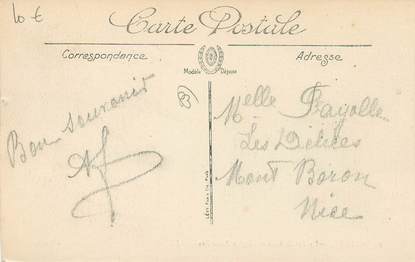 10 €
Carte Postale
Correspondance
Adresse
Modèle Déposé
Bon souvenir
Melle Fayolle
Les Délices
Mont Boron
Nice